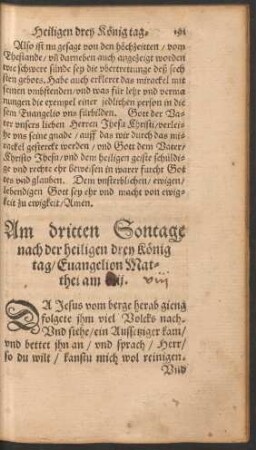 Heiligen drey König tag. 191
Also ist nu gesagt von den höchzeitten / vom
Ehestande / vñ darneben auch angezeigt worden
wie schwere sünde sey die vbertrettunge deß sech
sten gebots. Habe auch erkleret das mirackel mit
seinen vmbstenden / vnd was für lehr vnd verma
nungen die exempel einer jedlichen person in die
sem Euangelio vns fürbilden. Gott der Va-
ter vnsers lieben Herren Jhesu Christi / verleihe
vns seine gnade / auff das wir durch das mi-
rackel gestercket werden / vnd Gott dem Vater /
Christo Jhesu / vnd dem heiligen geiste schüldi-
ge vnd rechte ehr beweisen in warer furcht Got
tes vnd glauben. Dem vnsterblichen / ewigen /
lebendigen Gott sey ehr vnd macht von ewig-
keit zu ewigkeit / Amen.
Am dritten Sontage
nach der heiligen drey König
tag / Euangelion Mat-
thei am viij.
DA Jesus vom berge herab gieng
folgete jhm viel Volcks nach.
Vnd siehe / ein Aussetziger kam /
vnd bettet jhn an / vnd sprach / Herr /
so du wilt / kanstu mich wol reinigen.
Vnd